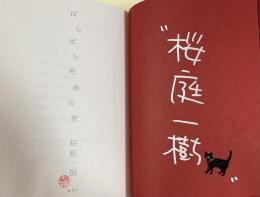 ばらばら死体の夜
桜庭一樹
"桜庭一樹"